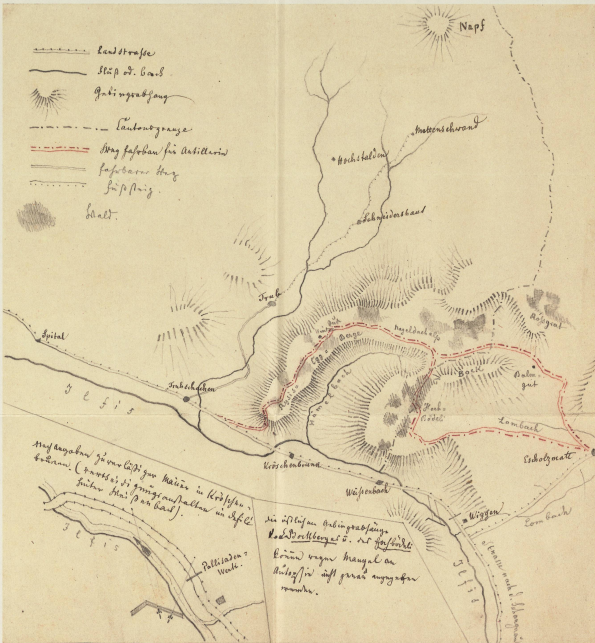 Landstraße
Fluß od. Bach
Gebirgsabhang
Cantonsgrenze
Weg fahrbar für Artillerie
fahrbarer Weg
Fußsteig.
Wald.
Napf
Mettenschwand
Hochstalden
Schneidershaus
Trub
Spital
Trubschachen
Ilfis
Rappengrat
Bock
gut
Hoch-
bödeli
Hämelbach
Lombach
Escholzmatt
Kröschenbrund
Wüstenbach
Wiggen
Lombach
Ilfis
Nach Angaben zuverläßiger Männer in Kröschen-
brunnen (Vertheidigungsanstalten im Defilé
hinter Wüstenbach).
Ilfis
Pallisaden-
Werk.
Die östlichen Gebirgsabhänge
des Bockberges u. des Hochbödeli
können wegen Mangel an
Autopsie nicht genau angegeben
werden.